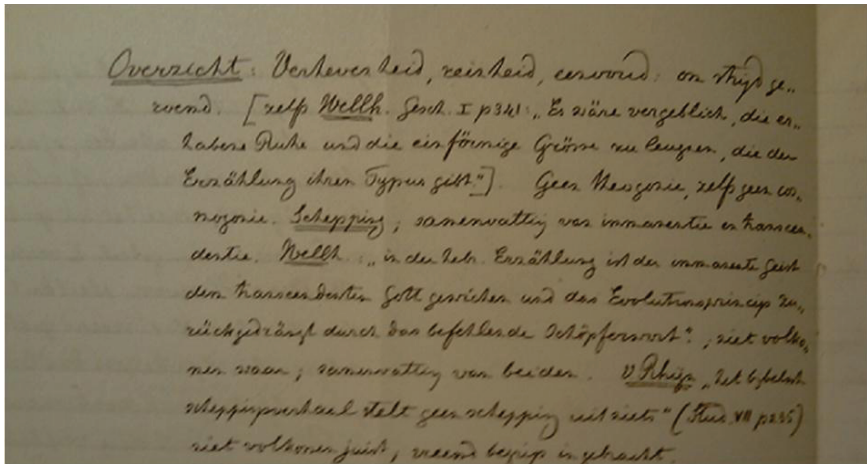 Overzicht: Verhevenheid, reinheid, eenvoud: onstrijdge„
roemd. [zelfs Wellh. Gesch. I p 341: „Es wäre vergeblich, die er„
habene Ruhe und die einförmige Grösse zu leugnen, die der
Erzählung ihren Typus gibt."]. Geen theogonie, zelfs geen cos„
mogonie. Schepping; samenvatting van immanentie en transcen„
dentie. Wellh.: „in der hebr. Erzählung ist der immanente Geist
dem transcendenten Gott gewichen und das Evolutionsprincip zu„
rückgedrängt durch das befehlende Schöpferwort"; niet volko„
men waar; samenvatting van beiden. v Rhijn „het bijbelsch
scheppingsverhaal stelt geen schepping uit niets" (Stud. VII p235)
niet volkomen juist; vreemd begrip ingebracht.